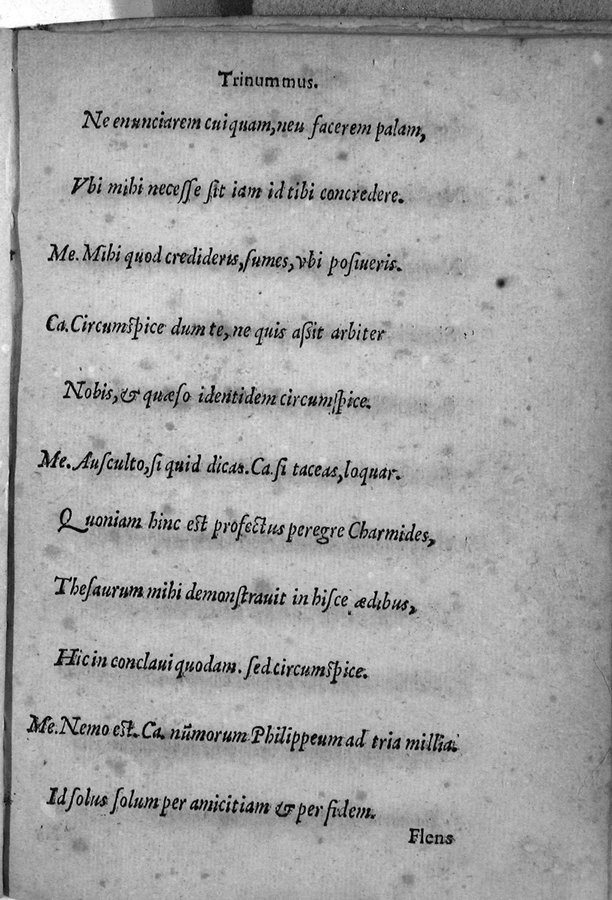 Trinummus.
Ne enunciarem cuiquam, neu facerem palam,
Vbi mihi necesse sit iam id tibi concredere.
Me. Mihi quod credideris, sumes, vbi posiueris.
Ca. Circumspice dum te, ne quis assit arbiter
Nobis, & quæso identidem circumspice.
Me. Ausculto, si quid dicas. Ca. si taceas, loquar.
Quoniam hinc est profectus peregre Charmides,
Thesaurum mihi demonstrauit in hisce ædibus,
Hic in conclaui quodam. sed circumspice.
Me. Nemo est. Ca. nũmorum Philippeum ad tria millia.
Id solus solum per amicitiam & per fidem.
Flens